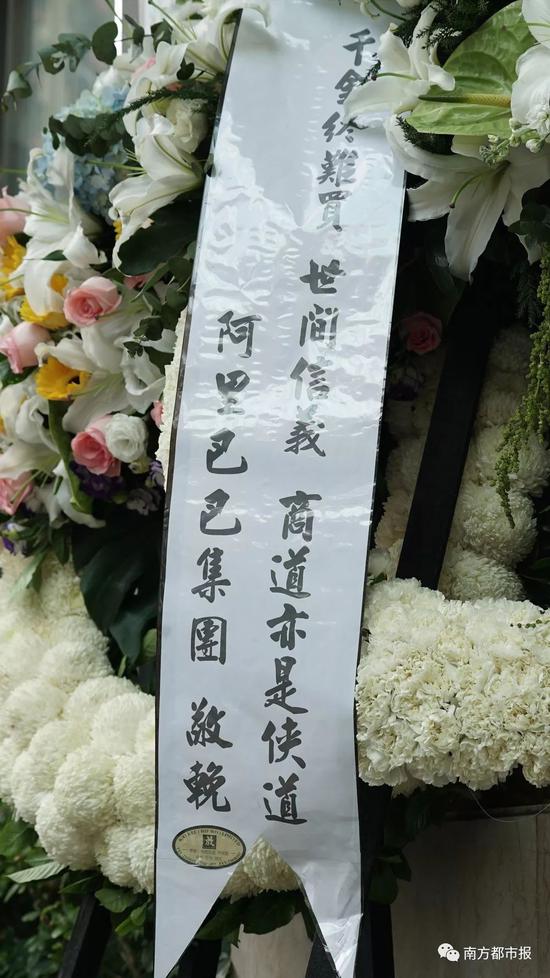 千金終難買 世間信義 商道亦是俠道
阿里巴巴集團 敬輓
放
南方都市报